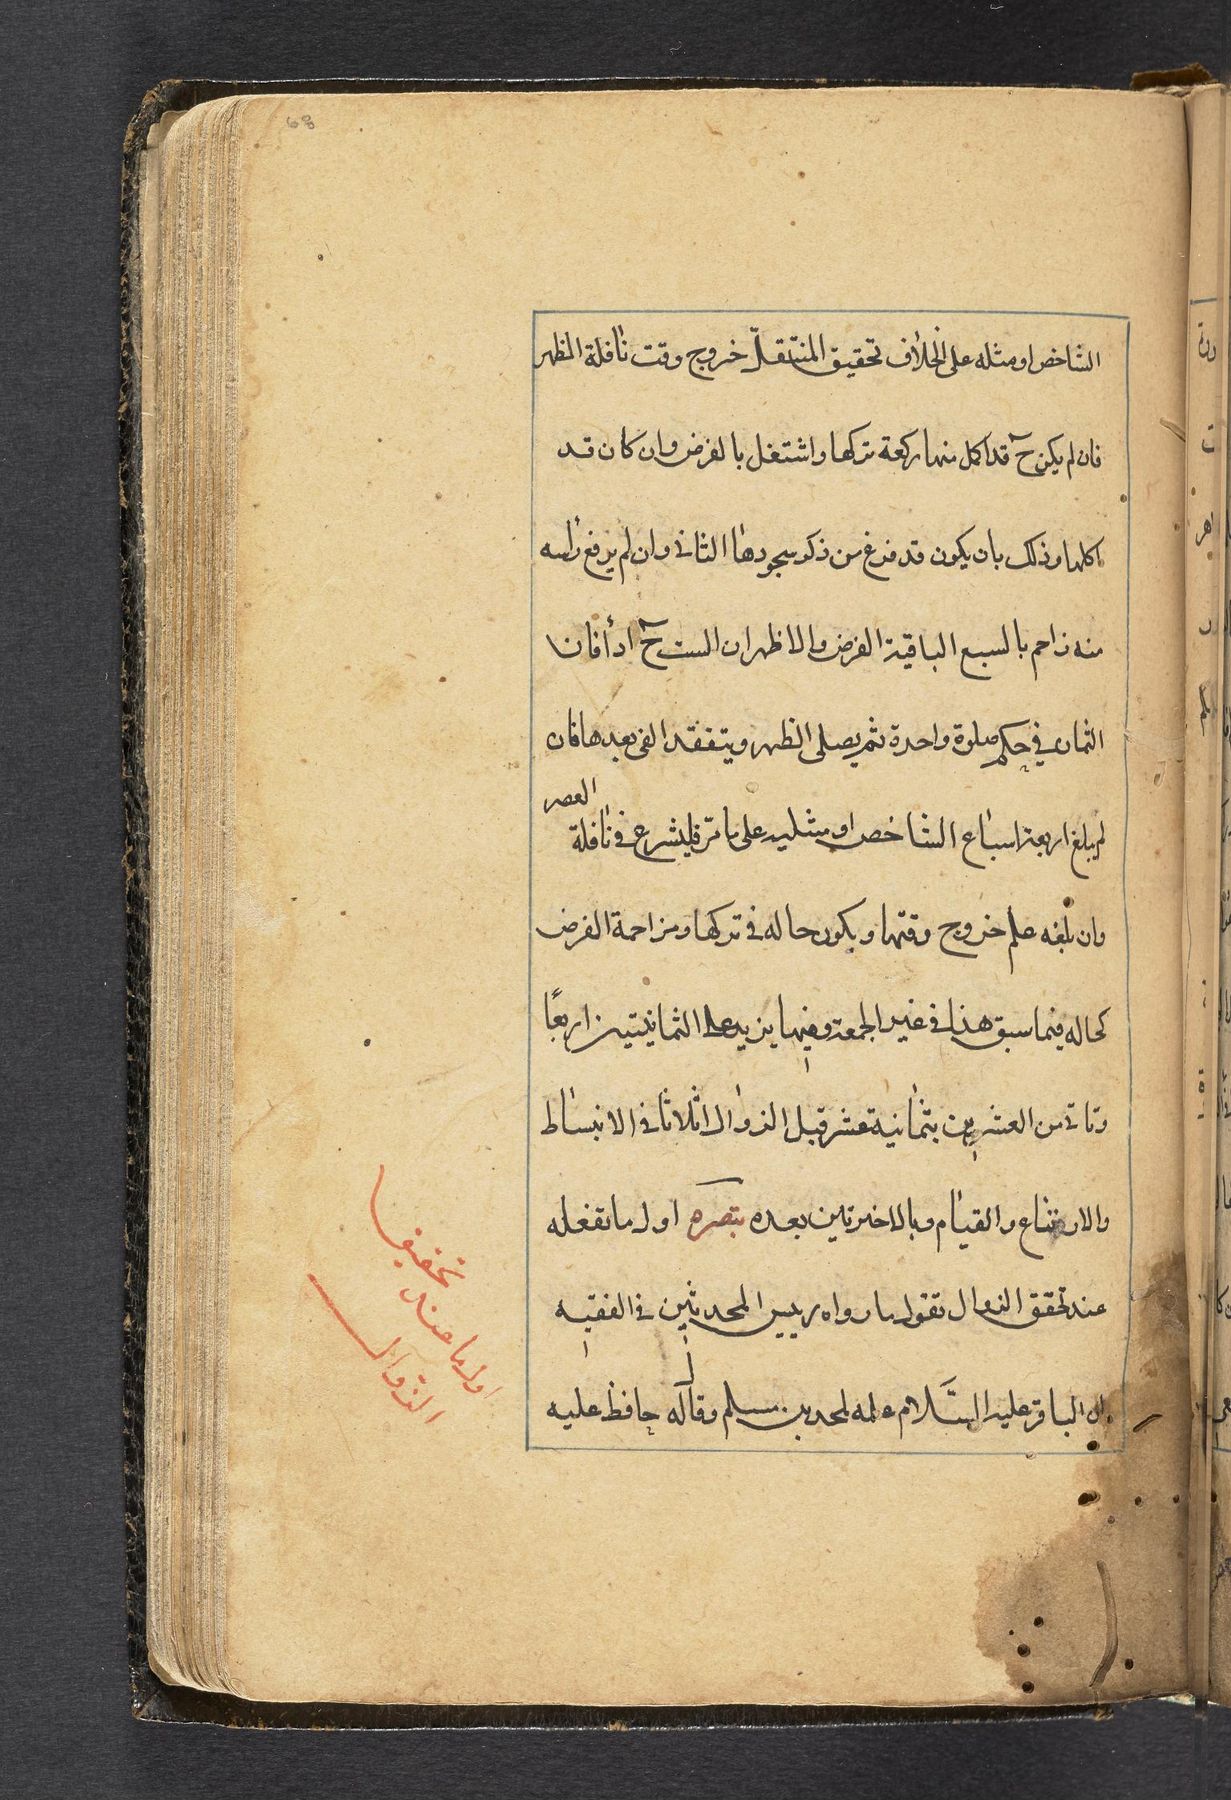 68
الشاخص او مثله على الخلاف تحقيق المنتقلّ خروج وقت نافلة الظهر
فان لم يكن ح قد اكمل منها ركعة تركها واشتغل بالفرض وان كان قد
اكملها وذلك بان يكون قد فرغ من ذكر سجودها الثانى وان لم يرفع رأسه
منه زاحم بالسبع الباقية الفرض والاظهر ان الست ح اداء فان
الثمان في حكم صلوة واحدة ثم يصلى الظهر ويتفقد الفئ بعدها فان
لم يبلغ اربعة اسباع الشاخص او مثليه على ما مرّ فليشرع فى نافلة العصر
وان بلغه علم خروج وقتها ويكون حاله فى تركها ومزاحمة الفرض
كحاله فيما سبق هذا فى غير الجمعة وفيها يزيد على الثمانيتين اربعًا
وتاتى من العشرين بثمانية عشر قبل الزوال اثلاثا فى الانبساط
والارتفاع والقيام وبالاخيرتين بعده تبصره اول ما تفعله
عند تحقق الزوال تقول ما رواه رييس المحدثين فى الفقيه
ان الباقر عليه السَّلام علمه لمحمد بن مسلم وقال له حافظ عليه
اول ما عند تحقيق
الزوال